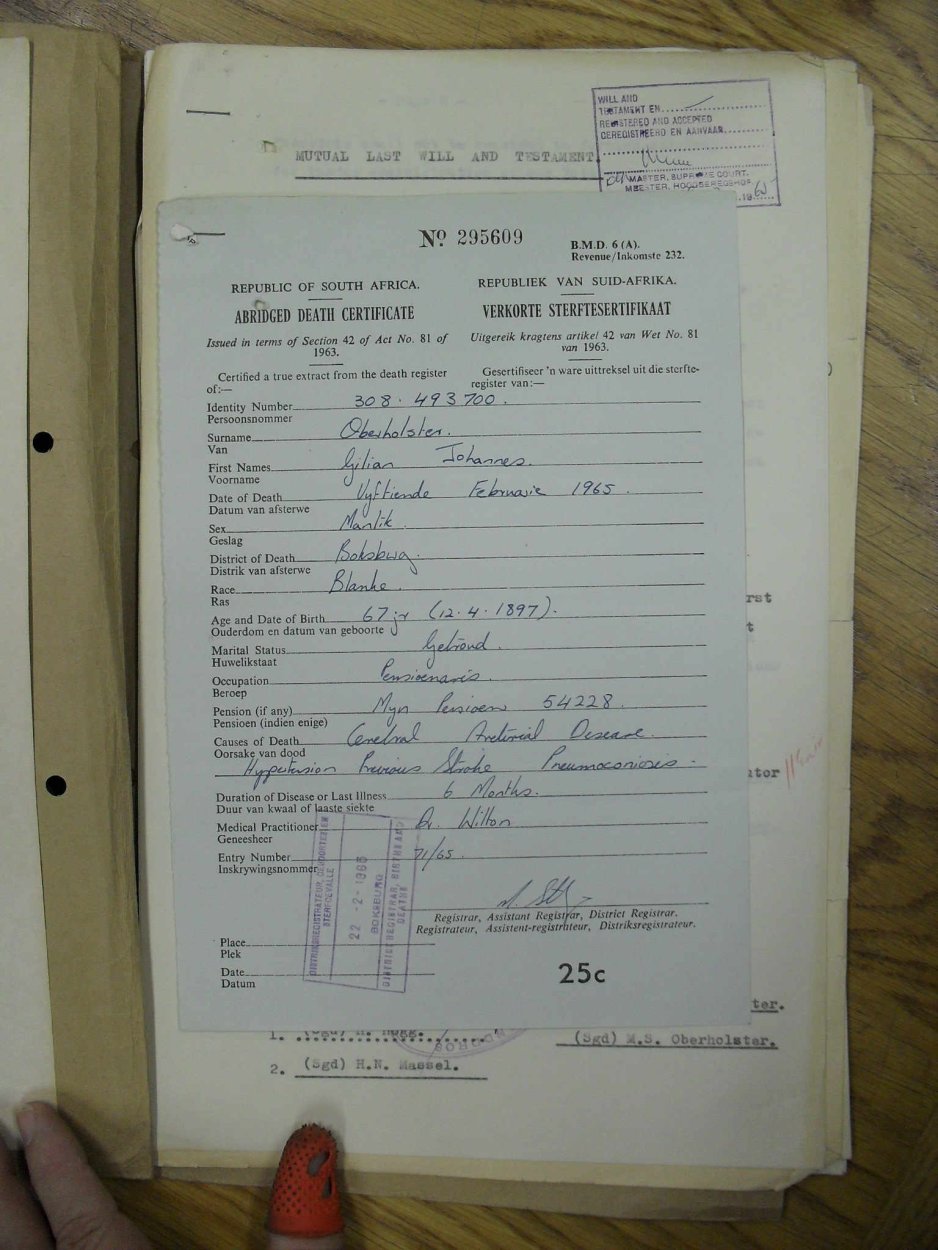 WILL AND
TESTAMENT EN
REGISTERED AND ACCEPTED
GEREGISTREERD EN AANVAAR
MASTER, SUPREME COURT.
MEESTER, HOOGGEREGSHOF
MUTUAL LAST WILL AND TESTAMENT.
No 295609
B.M.D. 6 (A).
Revenue/Inkomste 232.
REPUBLIC OF SOUTH AFRICA.
ABRIDGED DEATH CERTIFICATE
Issued in terms of Section 42 of Act No. 81 of
1963.
Certified a true extract from the death register
of:—
REPUBLIEK VAN SUID-AFRIKA.
VERKORTE STERFTESERTIFIKAAT
Uitgereik kragtens artikel 42 van Wet No. 81
van 1963.
Gesertifiseer 'n ware uittreksel uit die sterfte-
register van:—
Identity Number 308.493700.
Persoonsnommer
Surname Oberholster.
Van
First Names Gilian Johannes.
Voorname
Date of Death Vyftiende Februarie 1965.
Datum van afsterwe
Sex Manlik.
Geslag
District of Death Boksburg.
Distrik van afsterwe
Race Blanke.
Ras
Age and Date of Birth 67 jr (12.4.1897).
Ouderdom en datum van geboorte
Marital Status Getroud.
Huwelikstaat
Occupation Pensioenaris.
Beroep
Pension (if any) Myn Pensioen 54228.
Pensioen (indien enige)
Causes of Death Cerebral Arterial Disease
Oorsake van dood
Hypertension Previous Stroke Pneumoconioses -
Duration of Disease or Last Illness 6 Months.
Duur van kwaal of laaste siekte
Medical Practitioner Dr. Wilton
Geneesheer
Entry Number 71/65.
Inskrywingsnommer
Registrar, Assistant Registrar, District Registrar.
Registrateur, Assistent-registrateur, Distriksregistrateur.
Place
Plek
Date
Datum
25c
DISTRIKSREGISTRATEUR, GEBOORTES EN
STERFGEVALLE
22 -2- 1965
BOKSBURG
DISTRICT REGISTRAR, BIRTHS AND
DEATHS
rst
t
ator
ster.
1. (Sgd)
(Sgd) M.S. Oberholster.
2. (Sgd) H.N. Massel.